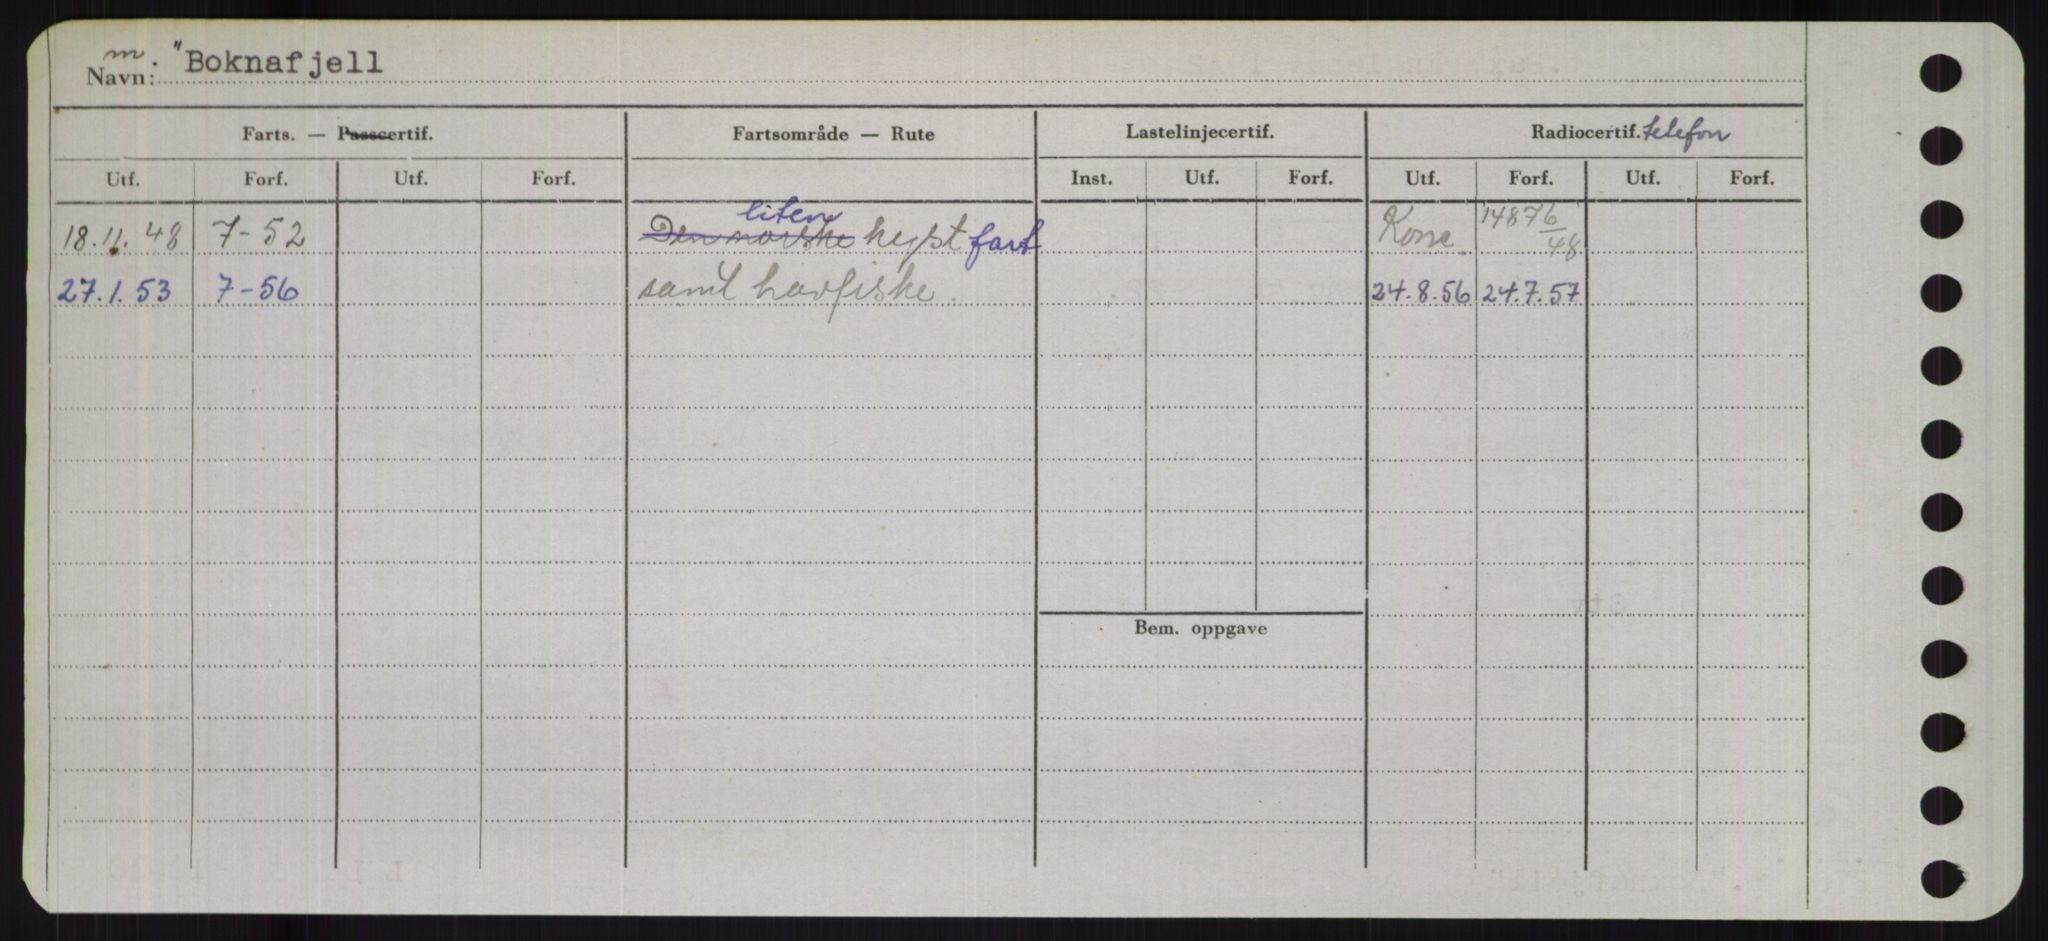 m. "Boknafjell
Navn:
Farts. — Passcertif. Fartsområde — Rute Lastelinjecertif. Radiocertif. telefon
Utf. Forf. Utf. Forf. Inst. Utf. Forf. Utf. Forf. Utf. Forf.
liten
18.11.48 7-52 Den norske kyst fart Konc. 14876/48
27.1.53 7-56 samt havfiske. 24.8.56 24.7.57
Bem. oppgave